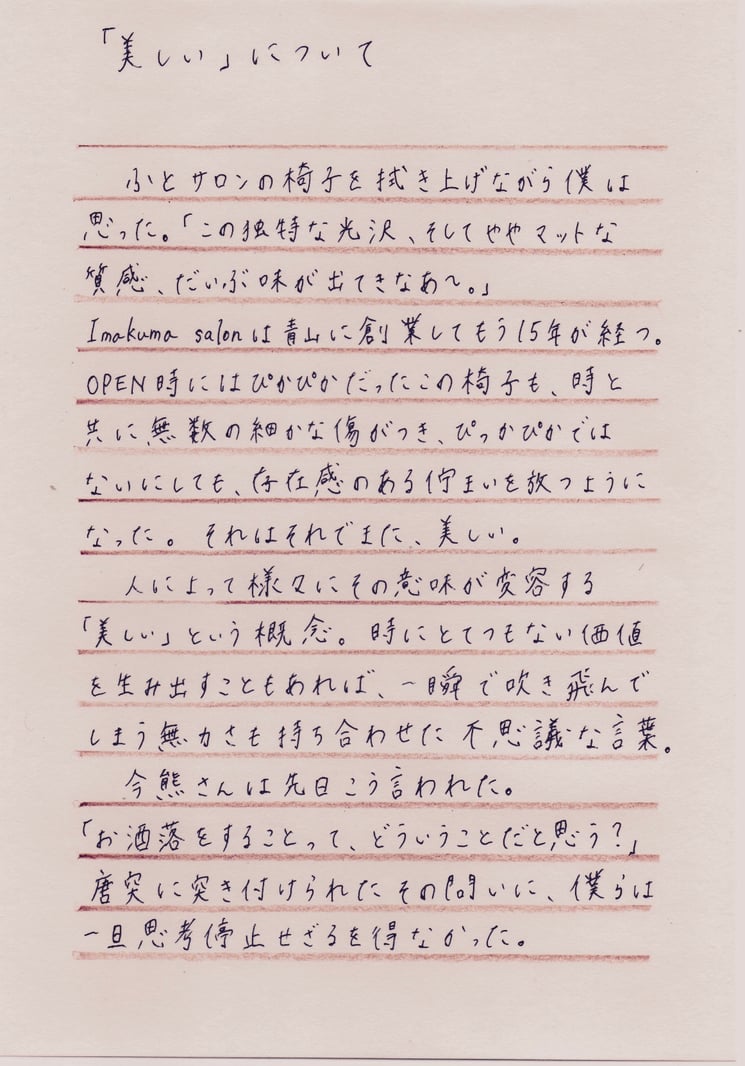 「美しい」について
ふとサロンの椅子を拭き上げながら僕は
思った。「この独特な光沢、そしてややマットな
質感、だいぶ味が出てきなあ〜。」
Imakuma salonは青山に創業してもう15年が経つ。
OPEN時にはぴかぴかだったこの椅子も、時と
共に無数の細かな傷がつき、ぴっかぴかでは
ないにしても、存在感のある佇まいを放つように
なった。それはそれでまた、美しい。
人によって様々にその意味が変容する
「美しい」という概念。時にとてつもない価値
を生み出すこともあれば、一瞬で吹き飛んで
しまう無力さも持ち合わせた不思議な言葉。
今熊さんは先日こう言われた。
「お洒落をすることって、どういうことだと思う？」
唐突に突き付けられたその問いに、僕らは
一旦思考停止せざるを得なかった。